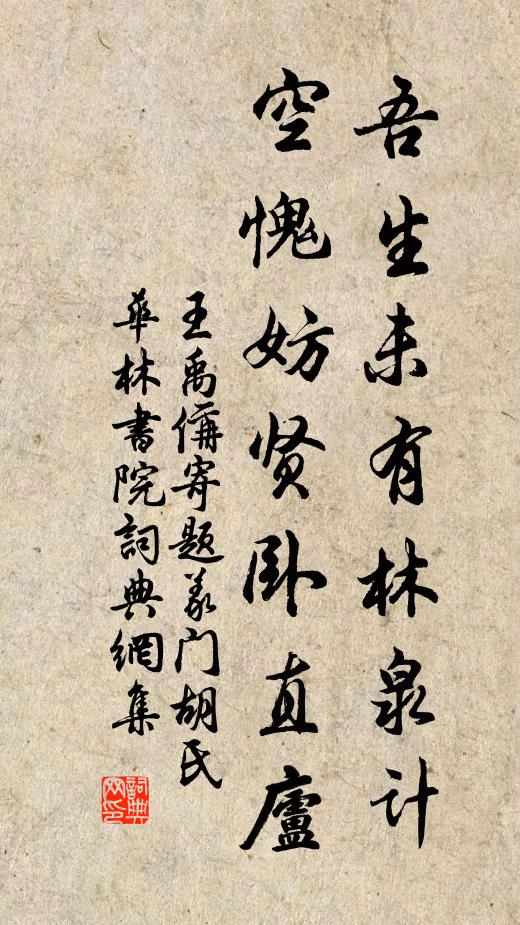 吾生未有林泉计
空愧妨贤卧直廬
王禹偁寄题义门胡氏
華林書院詞典網集
詞典
网印